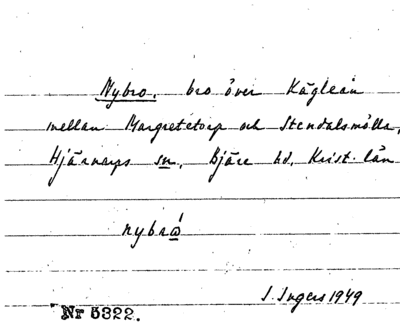 Nybro, bro över Käglean
mellan Margretetorp och Stendalsmölla,
Hjärnarps sn, Bjäre hd, Krist. län
nybro
I. Ingers 1949
Nr 5322.